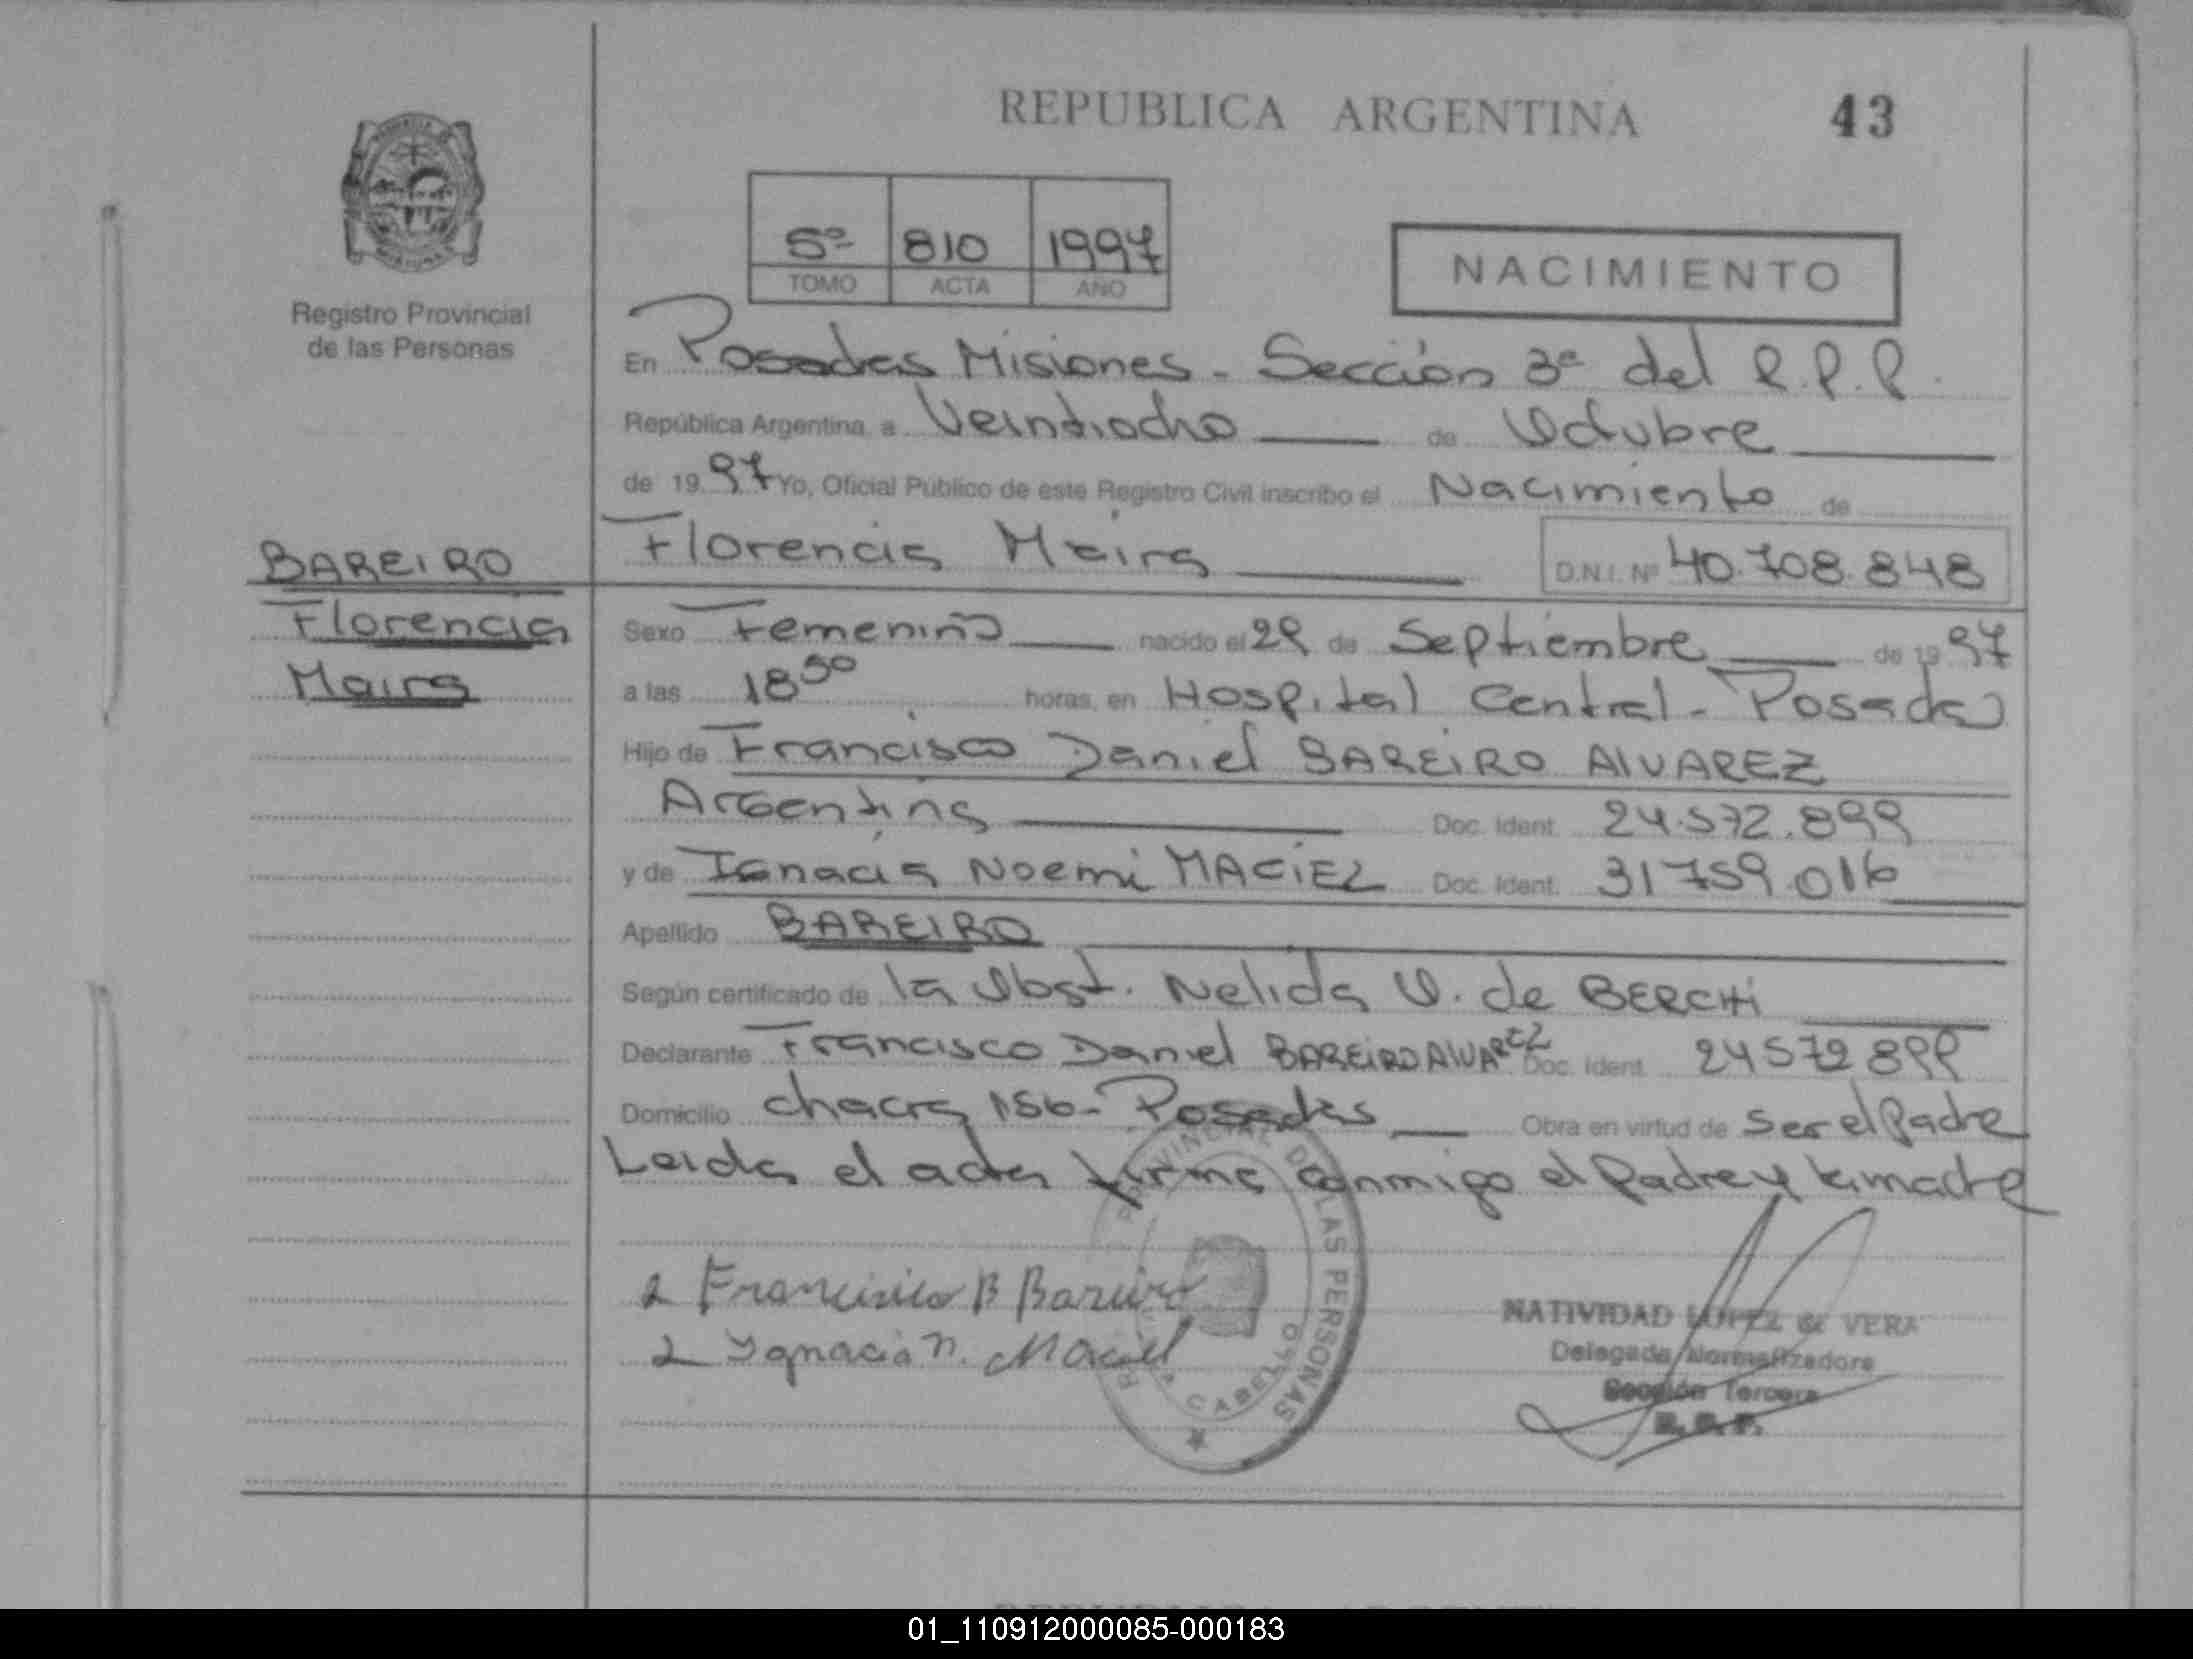 REPUBLICA ARGENTINA
43
Registro Provincial
de las Personas
5º 810 1997
TOMO ACTA AÑO
NACIMIENTO
En Posadas Misiones - Sección 3ª del R.P.P.
República Argentina, a Veintiocho de Octubre
de 1997 Yo, Oficial Público de este Registro Civil inscribo el Nacimiento de
BAREIRO
Florencia Maira
Florencia Maira D.N.I. Nº 40.708.848
Sexo Femenino nacido el 29 de Septiembre de 1997
a las 18 50 horas, en Hospital Central - Posadas
Hijo de Francisco Daniel BAREIRO ALVAREZ
Argentina Doc. Ident. 24.572.899
y de Ignacia Noemi MACIEL Doc. Ident. 31759.016
Apellido BAREIRO
Según certificado de la Obst. Nelida O. de BERCHI
Declarante Francisco Daniel BAREIRO ALVAREZ Doc. Ident. 24572899
Domicilio chacra 156 - Posadas Obra en virtud de ser el Padre
Leida el acta firma conmigo el Padre y la madre
Francisco Bareiro
Ygnacia n. Maciel
PROVINCIAL DE LAS PERSONAS
NATIVIDAD LOPEZ de VERA
Delegada Normalizadora
Sección Tercera
R.P.P.
01_110912000085-000183